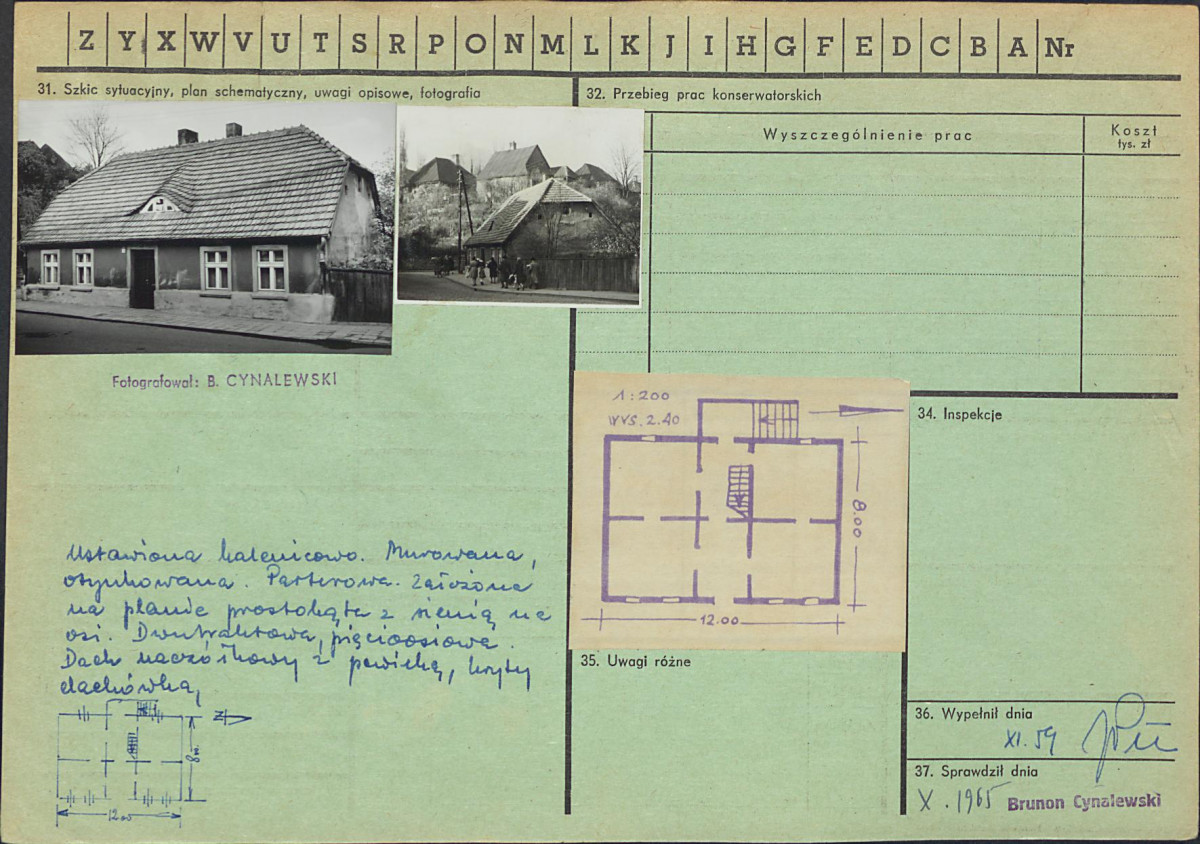 Z Y X W V U T S R P O N M L K J I H G F E D C B A Nr
31. Szkic sytuacyjny, plan schematyczny, uwagi opisowe, fotografia
Fotografował: B. CYNALEWSKI
Ustawiona kalenicowo. Murowana,
otynkowana. Parterowa. Założona
na planie prostokąta z sienią na
osi. Dwutraktowa, pięcioosiowa.
Dach naczółkowy z powieką, kryty
dachówką,
N
8 m
12 00
32. Przebieg prac konserwatorskich
Wyszczególnienie prac
Koszt
tys. zł
1:200
WYS. 2.40
8.00
12.00
34. Inspekcje
35. Uwagi różne
36. Wypełnił dnia
XI. 59
37. Sprawdził dnia
X. 1965 Brunon Cynalewski